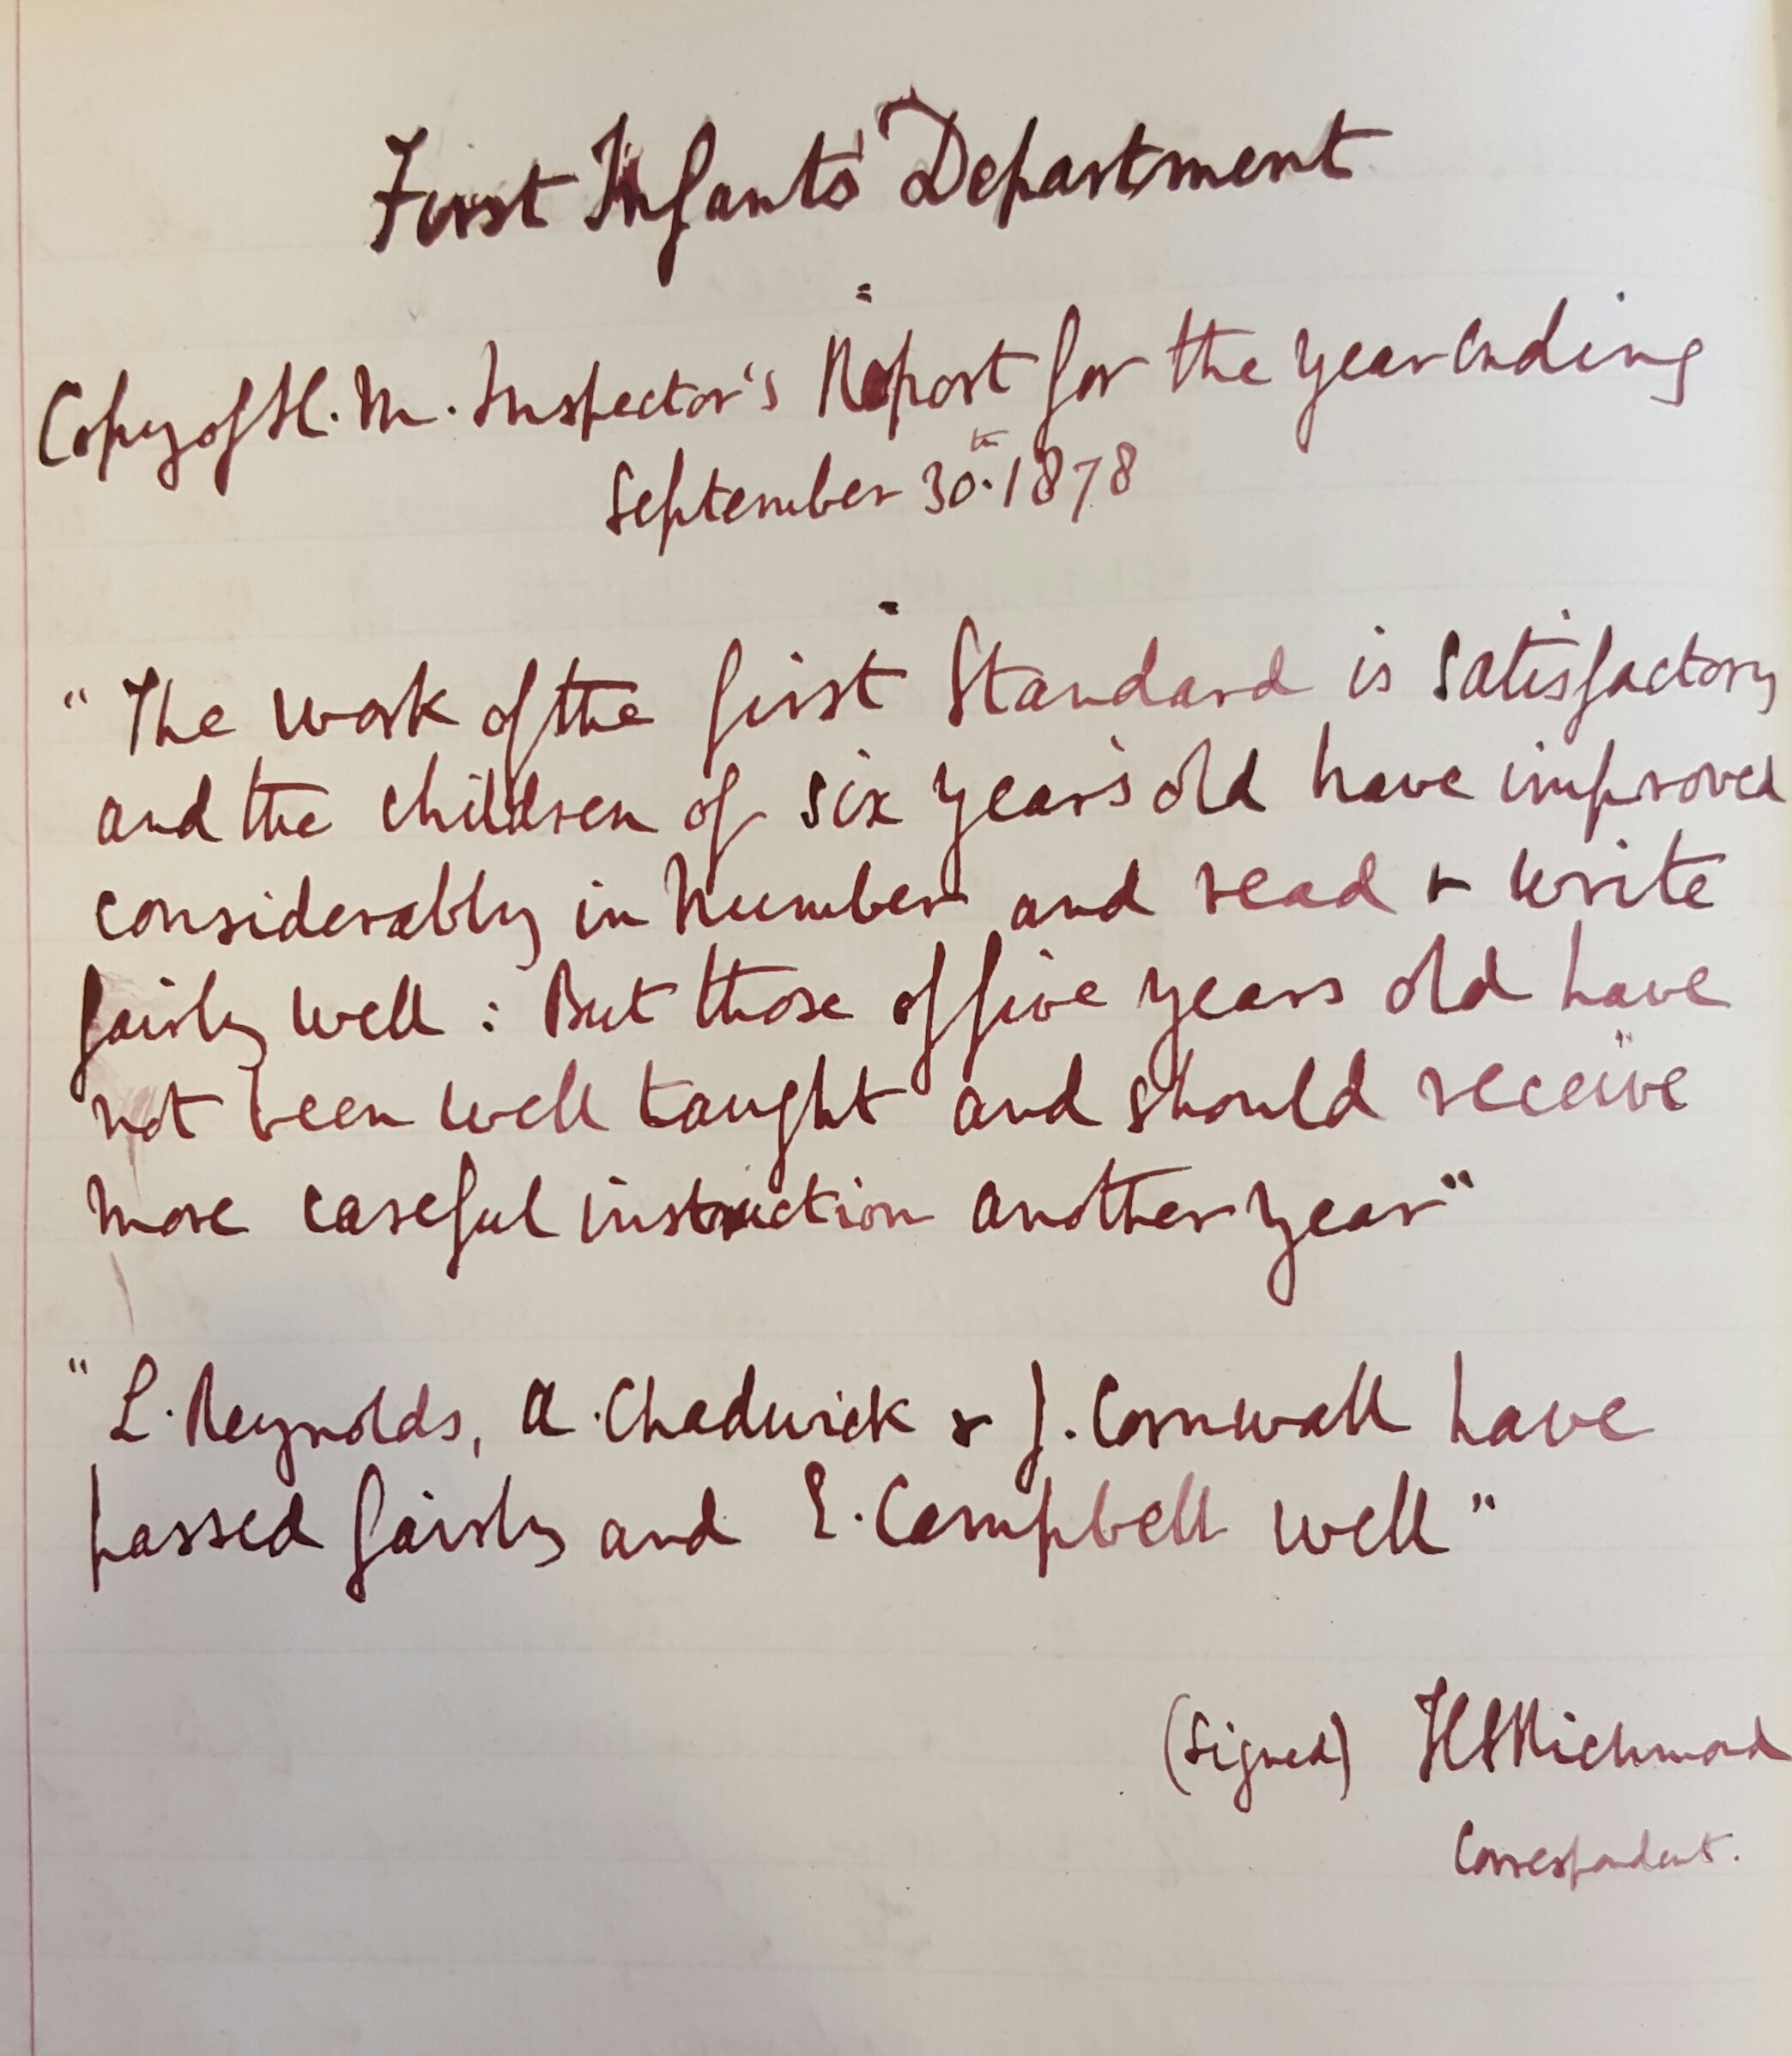 First Infants' Department
Copy of H. M. Inspector's Report for the year ending
September 30th. 1878
"The work of the first Standard is satisfactory
and the children of six year's old have improved
considerably in Number and read & write
fairly well : But those of five years old have
not been well taught and should receive
more careful instruction another year"
"L. Reynolds, A. Chadwick & J. Cornwall have
passed fairly and E. Campbell well"
(Signed) HSRichmond
Correspondent.